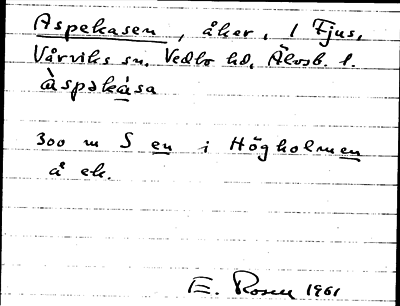 Aspekasen, åker, 1 Fjus,
Vårviks sn. Vedbo hd. Älvsb. l.
àspəkàsa
300 m S en i Högholmen
å ek.
E. Rosen 1961